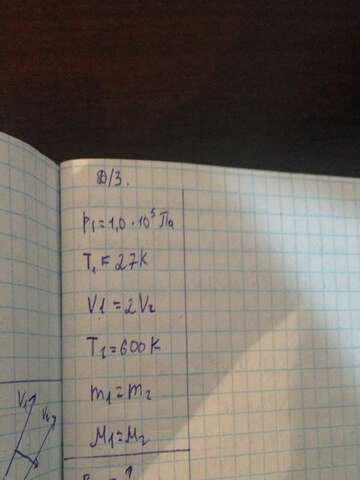 Д/З.
p₁=1,0·10⁵ Па
T₁=27К
V1=2V₂
T₂=600К
m₁=m₂
M₁=M₂
V₁
V₂